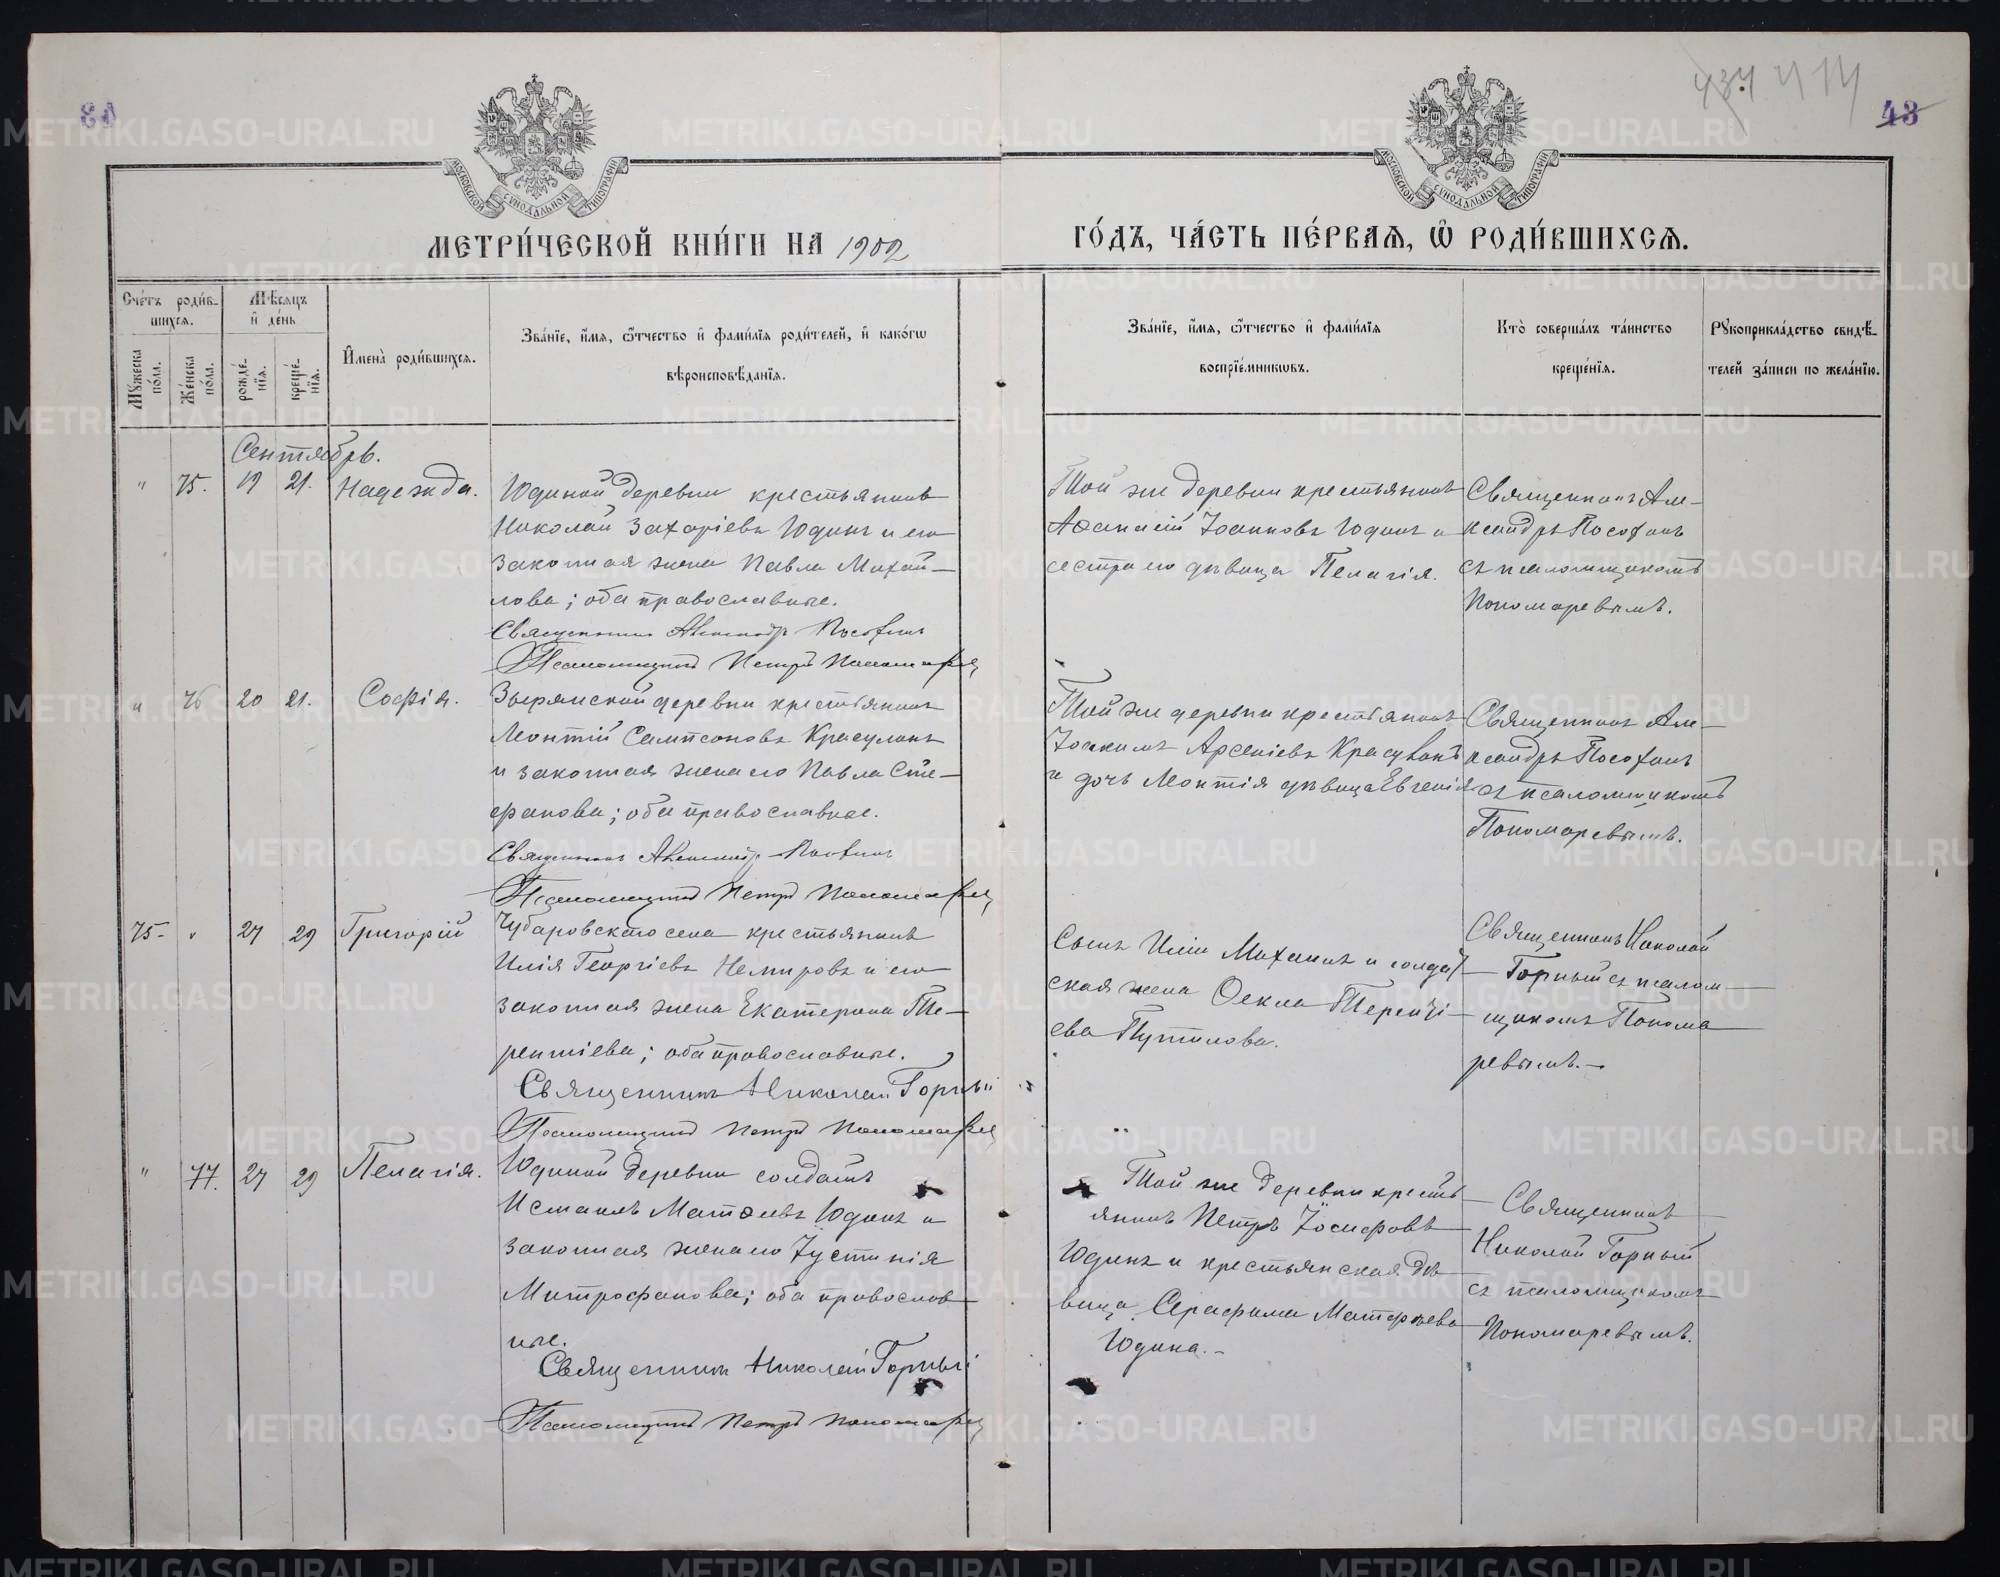 43
437 414
МОСКОВСКОЙ СѴНОДАЛЬНОЙ ТИПОГРАФІИ
МОСКОВСКОЙ СѴНОДАЛЬНОЙ ТИПОГРАФІИ
МЕТРИ́ЧЕСКОЙ КНИ́ГИ НА 1902
ГО́ДЪ, ЧА́СТЬ ПЕ́РВАѦ, Ѽ РОДИ́ВШИХСѦ.
Сче́тъ роди́в-
шихсѧ.
Мѣ́сѧцъ
и҆ де́нь
Мꙋ́жеска
по́ла.
Же́нска
по́ла.
рожде́-
нїѧ.
креще́-
нїѧ.
И҆мена̀ роди́вшихсѧ.
Зва́нїе, и҆́мѧ, ѻ҆́тчество и҆ фами́лїѧ роди́телей, и҆ како́гѡ
вѣроисповѣ́данїѧ.
Зва́нїе, и҆́мѧ, ѻ҆́тчество и҆ фами́лїѧ
воспрїе́мникѡвъ.
Кто̀ соверша́лъ та́инство
креще́нїѧ.
Рꙋкоприкла́дство свидѣ́-
телей за́писи по жела́нїю.
Сентябрь.
" 75. 19 21. Надежда.
Юдиной деревни крестьянинъ
Николай Захаріевъ Юдинъ и его
законная жена Павла Михай-
лова; оба православные.
Священникъ Александръ Посохинъ
Псаломщикъ Петръ Пономаревъ
Той же деревни крестьянинъ
Аѳанасій Іоанновъ Юдинъ и
сестра его дѣвица Пелагія.
Священникъ Але-
ксандръ Посохинъ
съ псаломщикомъ
Пономаревымъ.
" 76 20 21. Софія.
Зырянской деревни крестьянинъ
Леонтій Сампсоновъ Красулинъ
и законная жена его Павла Сте-
фанова; оба православные.
Священникъ Александръ Посохинъ
Псаломщикъ Петръ Пономаревъ
Той же деревни крестьянинъ
Іоакимъ Арсеніевъ Красулинъ
и дочь Леонтія дѣвица Евгенія
Священникъ Але-
ксандръ Посохинъ
съ псаломщикомъ
Пономаревымъ.
75- " 27 29 Григорій
Чубаровскаго села крестьянинъ
Илія Георгіевъ Немировъ и его
законная жена Екатерина Те-
рентіева; оба православные.
Священникъ Николай Горный
Псаломщикъ Петръ Пономаревъ
Сынъ Иліи Михаилъ и солдат-
ская жена Ѳекла Теренті-
ева Путилова.
Священникъ Николай
Горный съ псалом-
щикомъ Понома
ревымъ.-
" 77. 27 29 Пелагія.
Юдиной деревни солдатъ
Исмаилъ Матѳеевъ Юдинъ и
законная жена его Іустинія
Митрофанова; оба православ-
ные.
Священникъ Николай Горный
Псаломщикъ Петръ Пономаревъ
Той же деревни кресть
янинъ Петръ Іосифовъ
Юдинъ и крестьянская дѣ
вица Серафима Матфеева
Юдина.-
Священникъ
Николай Горный
съ псаломщикомъ
Пономаревымъ.
METRIKI.GASO-URAL.RU